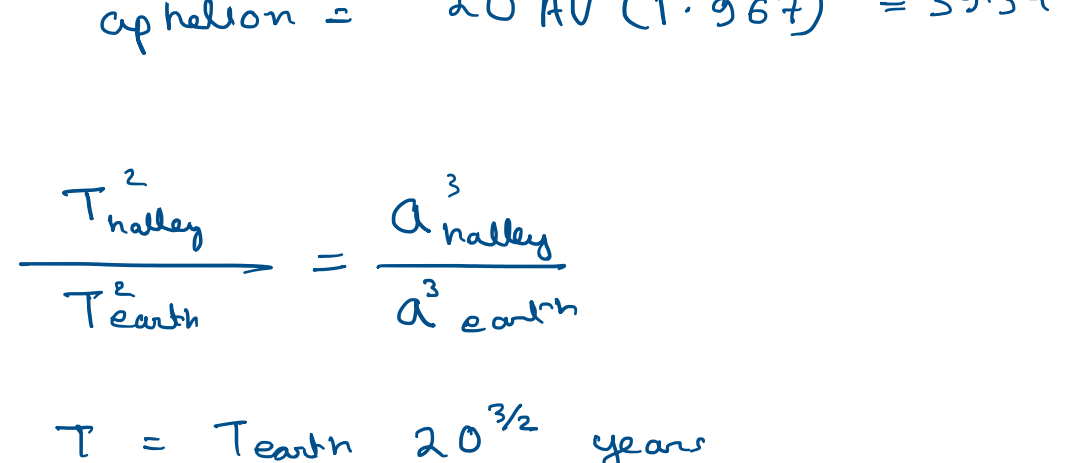 aphelion = 20 AU (1.967) = 39.34
T²halley / T²earth = a³halley / a³earth
T = Tearth 20^3/2 years